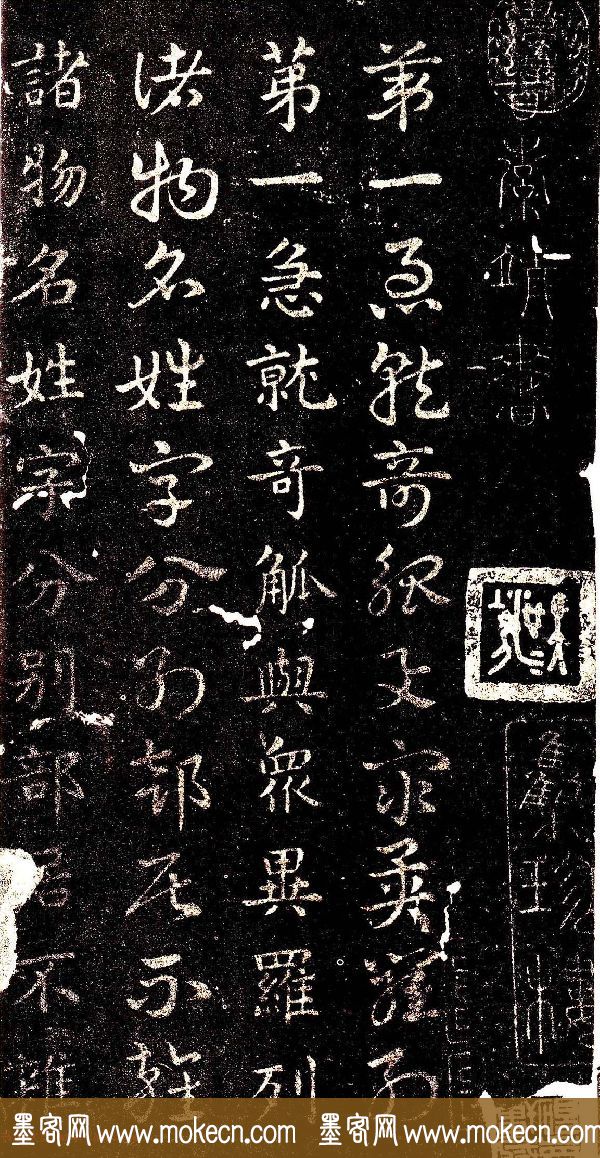 索靖書
第一急就奇觚與眾異羅列
第一急就奇觚與眾異羅列
諸物名姓字分別部居不雜
諸物名姓字分別部居不雜
墨客网 www.mokecn.com 墨客网 www.mokecn.com